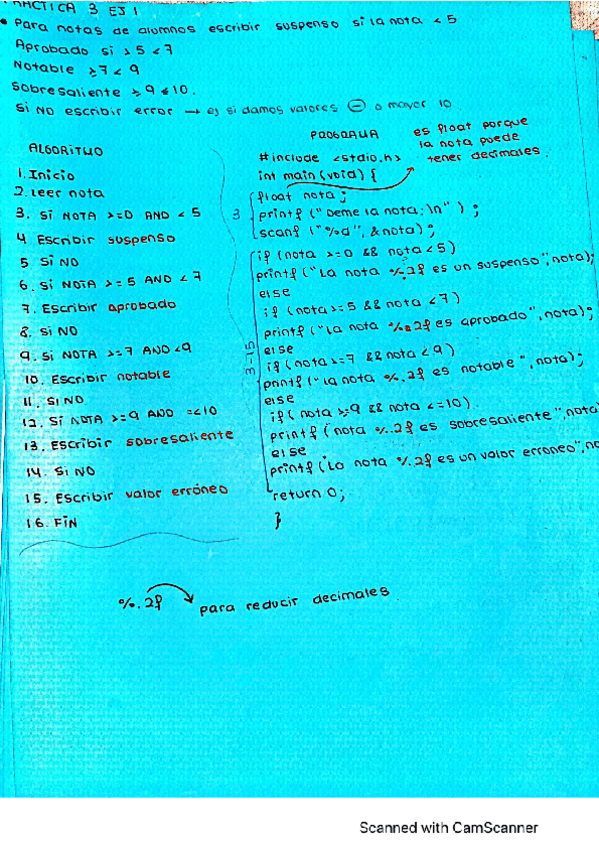 PRACTICA 3 EJ 1
• Para notas de alumnos escribir suspenso si la nota < 5
Aprobado si ≥ 5 < 7
Notable ≥ 7 < 9
Sobresaliente ≥ 9 ≤ 10.
Si NO escribir error → ej si damos valores ⊖ o mayor 10
ALGORITMO
1. Inicio
2. Leer nota
3. Si NOTA >=0 AND < 5
4 Escribir suspenso
5 Si NO
6. Si NOTA >= 5 AND < 7
7. Escribir aprobado
8. Si NO
9. Si NOTA >=7 AND <9
10. Escribir notable
11. Si NO
12. Si NOTA >=9 AND =<10
13. Escribir sobresaliente
14. Si NO
15. Escribir valor erróneo
16. FIN
PROGRAMA
es float porque
la nota puede
tener decimales.
#include <stdio.h>
int main (void) {
float nota;
3 printf ("Deme la nota: \n");
scanf ("%d", &nota);
3-15
if (nota >=0 && nota<5)
printf ("La nota %.2f es un suspenso", nota);
else
if (nota>=5 && nota <7)
printf ("La nota %.2f es aprobado", nota);
else
if (nota>=7 && nota < 9)
printf ("la nota %.2f es notable", nota);
else
if (nota >=9 && nota <=10)
printf (nota %.2f es sobresaliente", nota
else
printf (La nota %.2f es un valor erroneo", no
return 0;
}
%.2f → para reducir decimales.
Scanned with CamScanner